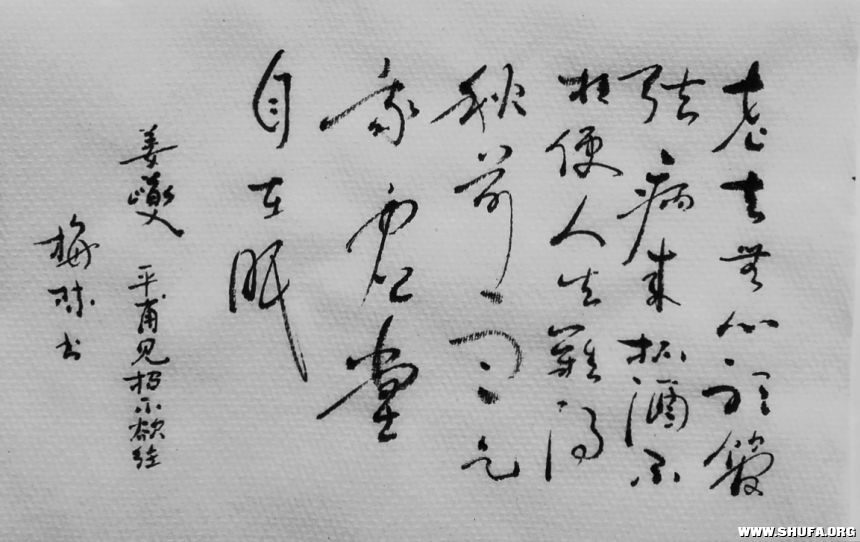 老去無心聽管
弦病来杯酒不
相便人生難得
秋前雨乞
我虚堂
自在眠
姜夔 平甫见招不欲往
梅 书
WWW.SHUFA.ORG